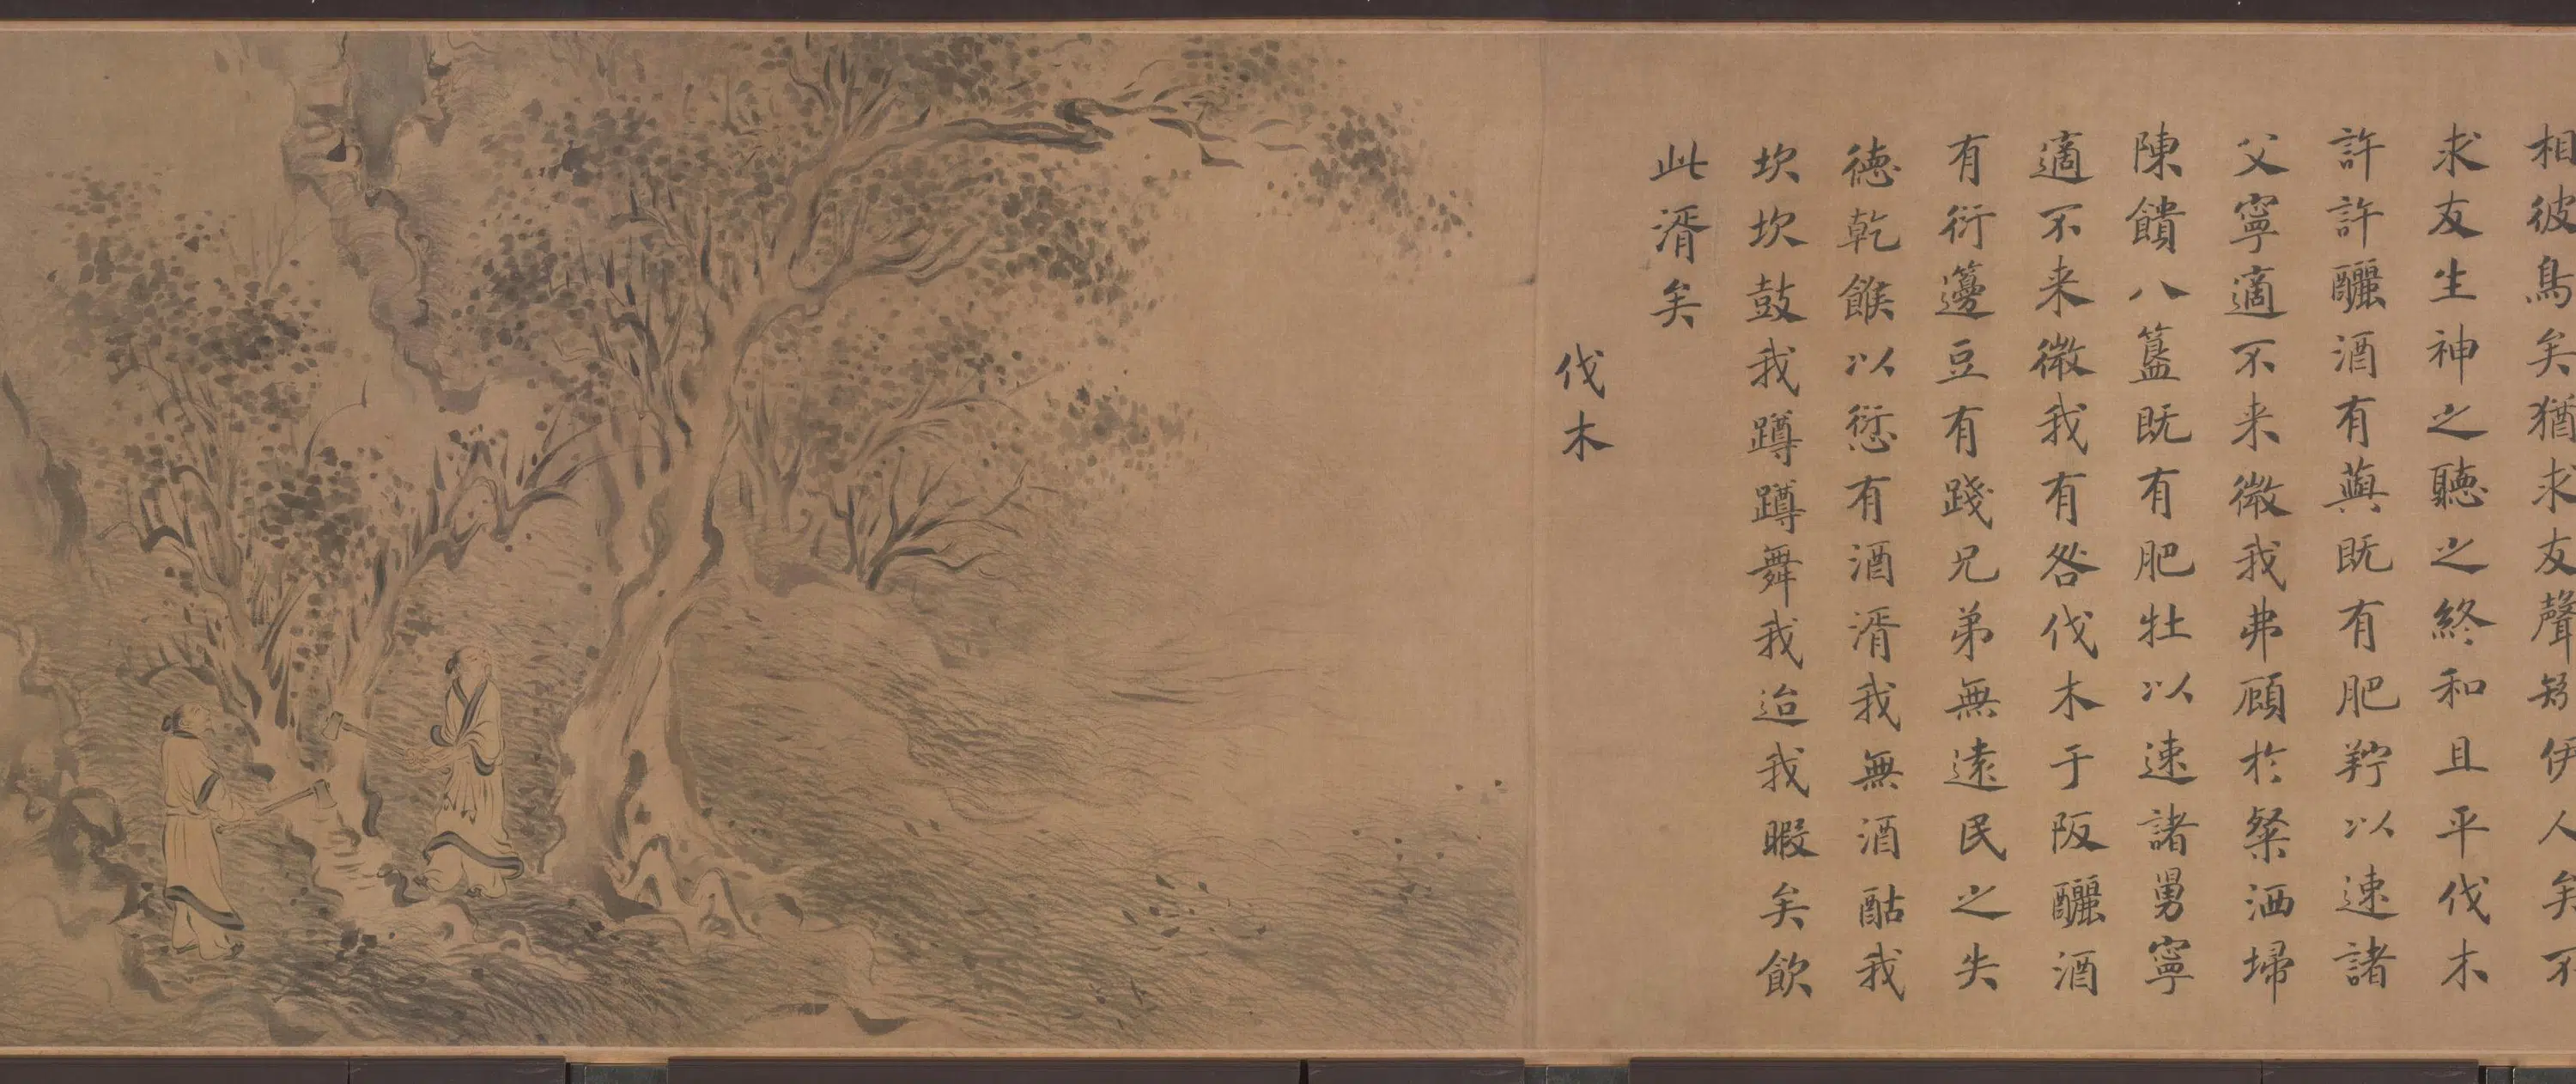 相彼鳥矣猶求友聲矧伊人矣不
求友生神之聽之終和且平伐木
許許釃酒有藇既有肥羜以速諸
父寧適不来微我弗顧於粲洒埽
陳饋八簋既有肥牡以速諸舅寧
適不来微我有咎伐木于阪釃酒
有衍籩豆有踐兄弟無遠民之失
德乾餱以愆有酒湑我無酒酤我
坎坎鼓我蹲蹲舞我迨我暇矣飲
此湑矣
伐木